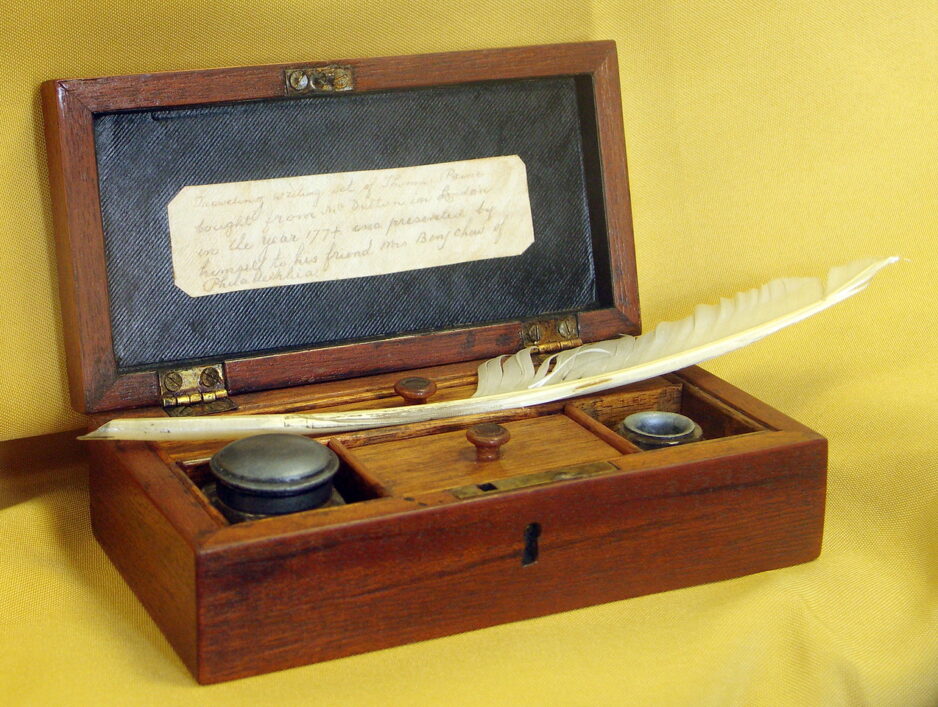 Traveling writing set of Thomas Paine
bought from Mr Dutton in London
in the year 1774 and presented by
himself to his friend Mrs Benj Chew of
Philadelphia